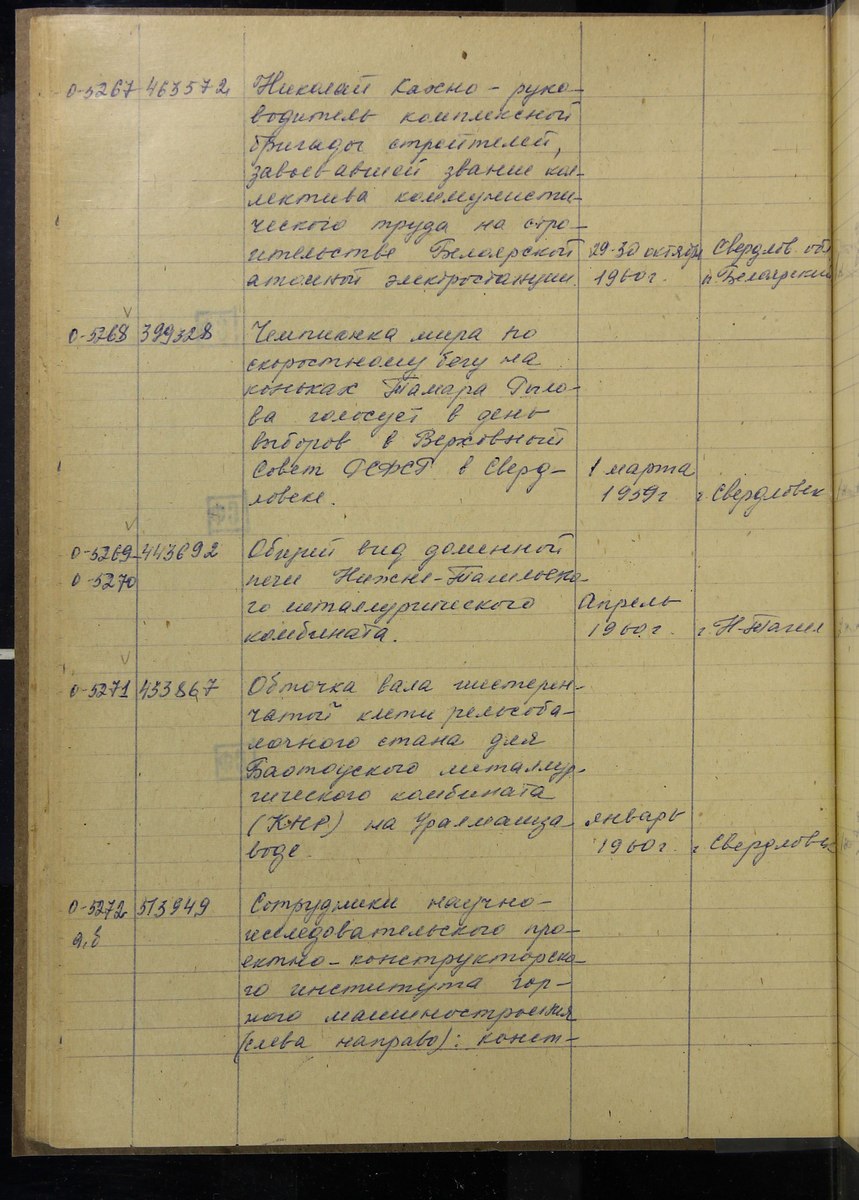 0-5267 463572 Николай Кахно - руко-
водитель комплексной
бригады строителей,
завоевавшей звание кол-
лектива коммунисти-
ческого труда на стро-
ительстве Белоярской 29-30 октября Свердлов. обл
атомной электростанции. 1960 г. п. Белоярский
0-5268 399328 Чемпионка мира по
скоростному бегу на
коньках Тамара Рыло-
ва голосует в день
выборов в Верховный
Совет РСФСР в Сверд- 1 марта
ловске. 1959 г г. Свердловск
0-5269- 443692 Общий вид доменной
0-5270 печи Нижне-Тагильско-
го металлургического Апрель
комбината. 1960 г. г. Н-Тагил
0-5271 433867 Обточка вала шестерен-
чатой клети рельсоба-
лочного стана для
Баотоуского металлур-
гического комбината
(КНР) на Уралмашза- январь
воде. 1960 г. г. Свердловск
0-5272 513949 Сотрудники научно-
а,б исследовательского про-
ектно-конструкторско-
го института гор-
ного машиностроения
(слева направо): конст-